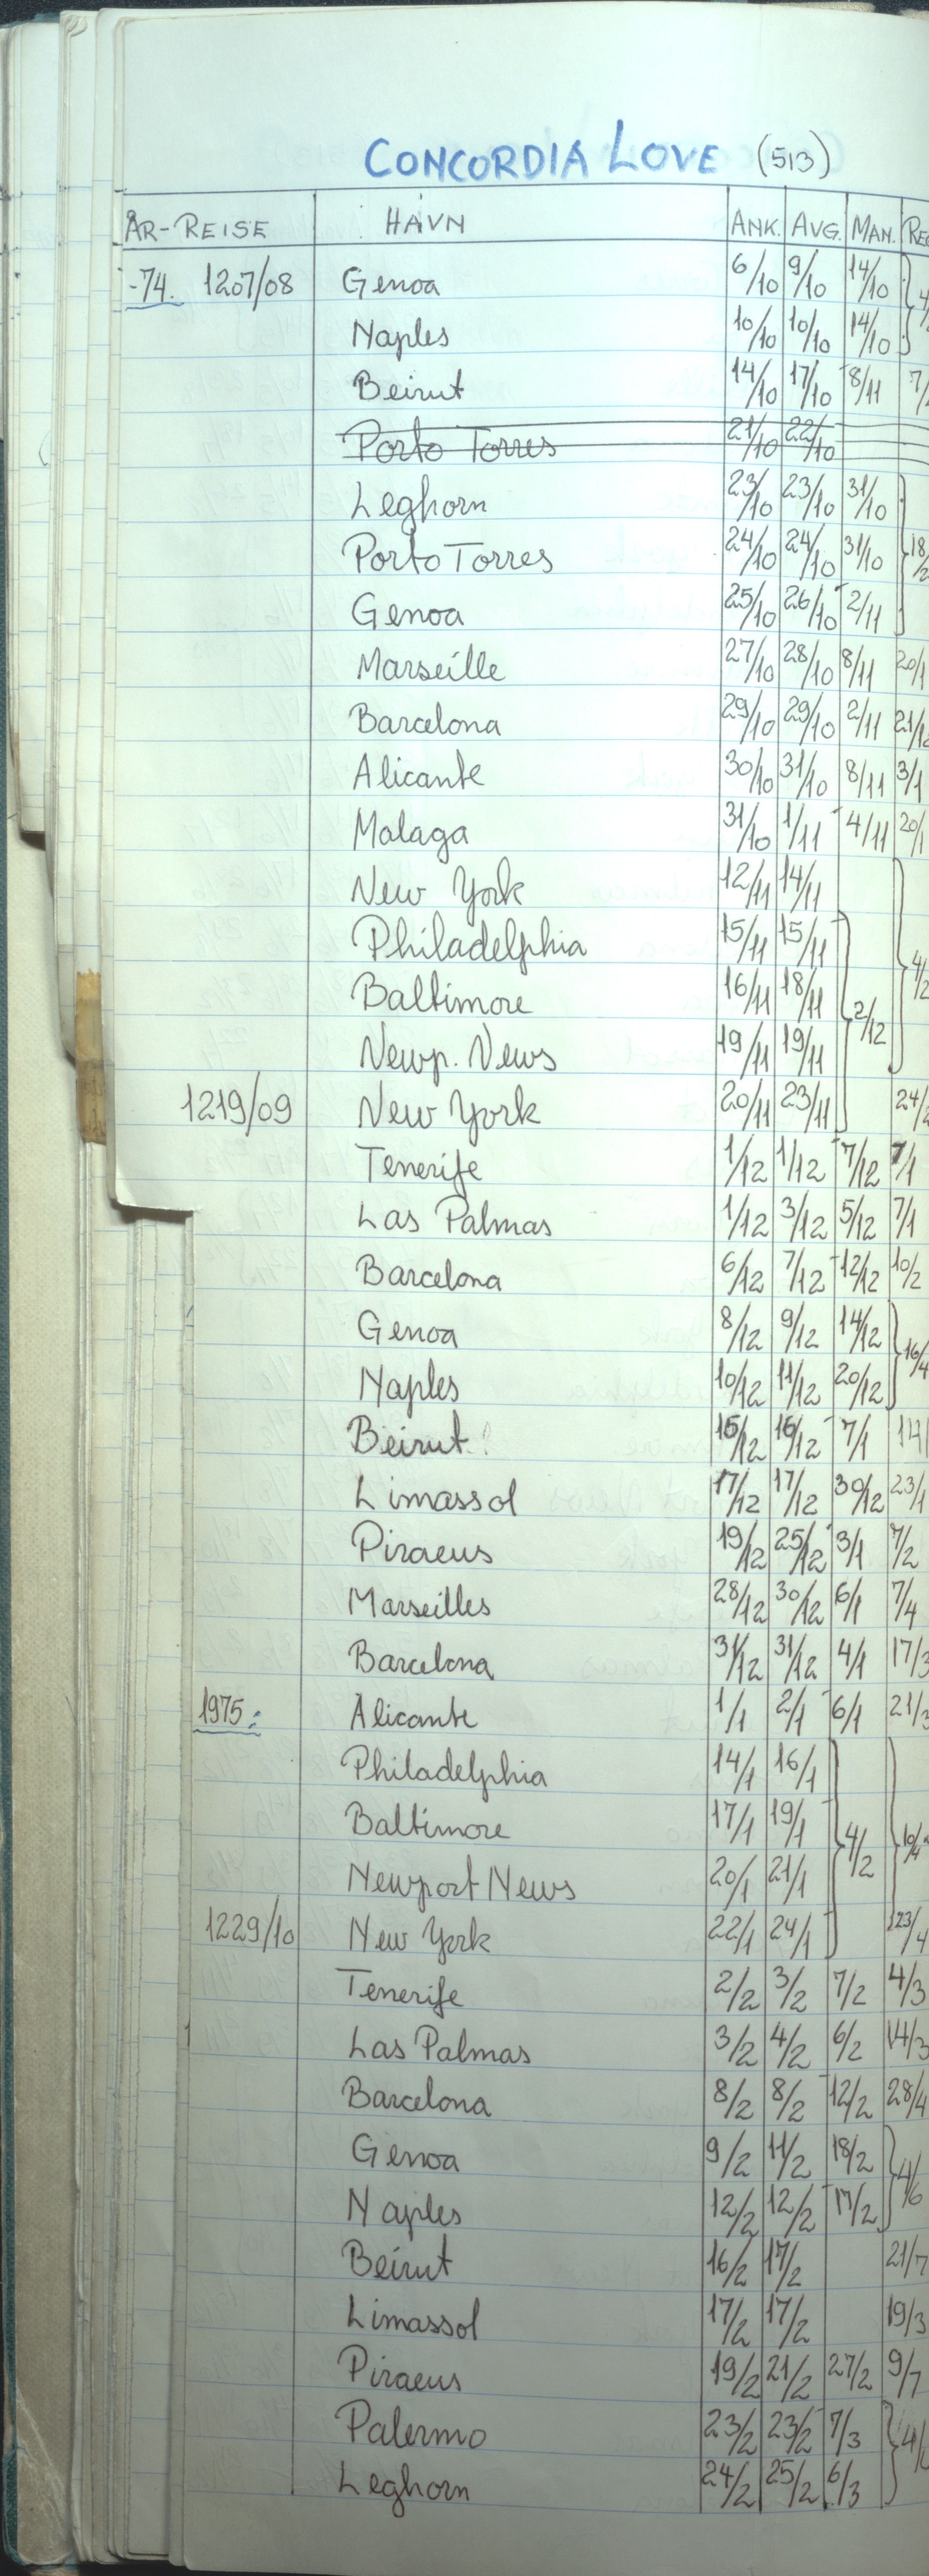 CONCORDIA LOVE (513)
ÅR-REISE HAVN ANK. AVG. MAN.
-74. 1207/08 Genoa 6/10 9/10 14/10
Naples 10/10 10/10 14/10
Beirut 14/10 17/10 8/11
Porto Torres 21/10 22/10
Leghorn 23/10 23/10 31/10
Porto Torres 24/10 24/10 31/10
Genoa 25/10 26/10 2/11
Marseille 27/10 28/10 8/11 20/1
Barcelona 29/10 29/10 2/11
Alicante 30/10 31/10 8/11 3/1
Malaga 31/10 1/11 4/11 20/1
New York 12/11 14/11
Philadelphia 15/11 15/11
Baltimore 16/11 18/11 2/12 4/2
Newp. News 19/11 19/11
1219/09 New York 20/11 23/11
Tenerife 1/12 1/12 7/12 7/1
Las Palmas 1/12 3/12 5/12 7/1
Barcelona 6/12 7/12 12/12 10/2
Genoa 8/12 9/12 14/12 16/4
Naples 10/12 11/12 20/12
Beirut 15/12 16/12 7/1
Limassol 17/12 17/12 30/12 23/1
Piraeus 19/12 25/12 3/1 7/2
Marseilles 28/12 30/12 6/1 7/4
Barcelona 31/12 31/12 4/1 17/3
1975: Alicante 1/1 2/1 6/1 21/3
Philadelphia 14/1 16/1
Baltimore 17/1 19/1 4/2 10/4
Newport News 20/1 21/1
1229/10 New York 22/1 24/1 23/4
Tenerife 2/2 3/2 7/2 4/3
Las Palmas 3/2 4/2 6/2 14/3
Barcelona 8/2 8/2 12/2 28/4
Genoa 9/2 11/2 18/2 4/6
Naples 12/2 12/2 17/2
Beirut 16/2 17/2 21/7
Limassol 17/2 17/2 19/3
Piraeus 19/2 21/2 27/2 9/7
Palermo 23/2 23/2 7/3
Leghorn 24/2 25/2 6/3